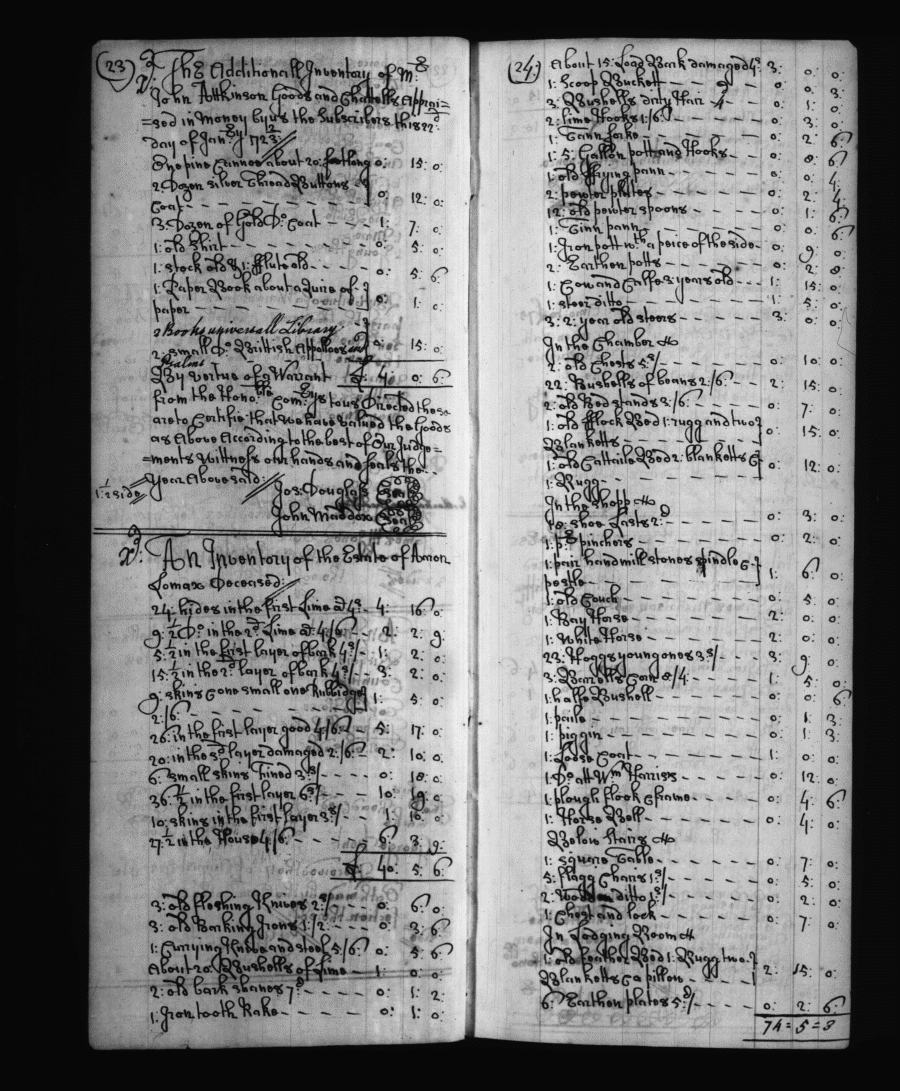 (23)
The Additionall Inventory of Mr
John Attkinson Goods and Chattells Apprai=
=sed in Money by us the Subscribers this 22d
day of Janry 1723
One pine Cannoe about 20: foot long 0: 15: 0:
2: Dozen silver Thread Buttons &
Coat 0: 12: 0:
3: Dozen of Gold Do: Coat 1: 7: 0:
1: old Shirt 0: 5: 0:
1: stock old & 1: flute old 0: 5: 6
1: Paper Book about a Quire of
paper 0: 1: 0:
2 Books universall Library
2 small Do Brittish Appolloes and 0: 15: 0:
Psalms
By vertue of a Warrant £ 4: 0: 6:
from the Honoble Comissrys to us Directed these
are to Certifie that we have valued the Goods
as Above According to the best of Our Judge=
=ments Wittness our hands and seals the
Year Above said:
1: 2 side
Jos: Douglass Seal
John Maddox Seal
An Inventory of the Estate of Aaron
Lomax Deceased:
24: hides in the first Lime at 4s 4: 16: 0:
9: ½ Do: in the 2d Lime at: 4/6 2: 2: 9:
5: ½ in the first layer of bark 4s/ 1: 2: 0:
15: ½ in the 2d: layer of bark 4s/ 3: 2: 0:
9: skins & one small one Rubbidge
2:/6: 1: 5: 0:
26: in the first layer good 4/6 5: 17: 0:
20: in the 3d layer damaged 2:/6: 2: 10: 0:
6: small skins Tined 3s/ 0: 18: 0:
36 ½ in the first layer 6s/ 10: 19: 0:
10: skins in the first layer 3s/ 1: 10: 0:
27: ½ in the House 4/6: 6: 3: 9:
£ 40: 5: 6:
3: old fleshing Knives 2s/ 0: 6: 0:
3: old Barking Irons 1:/2: 0: 3: 6:
1: Currying Knife and steel 5:/6: 0: 5: 6:
About 20: Bushells of Lime 1: 0: 0:
2: old bark shaves 7d 0: 1: 2:
1: Iron tooth Rake 0: 1: 0:
(24)
About 15: Load Bark damaged 4s 3: 0: 0:
1: Scoop Buckett 0: 0: 3:
3: Bushells dirty Hair 4 0: 1: 0:
2: lime Hooks 1:/6: 0: 3: 0:
1: Tann forke 0: 2: 6
1: 5: Gallon pott and Hooks 0: 8: 6
1: old frying pann 0: 0: 4:
2: pewter plates 0: 2: 4
12: old pewter spoons 0: 1: 6
1: Tinn pann 0: 0: 6
1: Iron pott wth a peice of the side 0: 9: 0:
2: Earthen potts 0: 2: 8
1: Cow and Calfe 3: years old 1: 15: 0:
1: steer ditto 1: 5: 0:
3: 2: year old steers 3: 0: 0:
In the Chamber
2: old Chests 5s/ 0: 10: 0:
22: Bushells of beans 2:/6: 2: 15: 0:
2: old Bed stands 3:/6: 0: 7: 0:
1: old flock Bed 1: rugg and two
Blanketts 0: 15: 0:
1: old Cattaile Bed 2: blanketts &
1: Rugg 0: 12: 0:
In the Shopp
18: shoe Lasts 2d: 0: 3: 0:
1: pr pinchers 0: 2: 0:
1: pair handmill stones spindle &
pestle 1: 6: 0:
1: old Couch 0: 5: 0:
1: Bay Horse 2: 0: 0:
1: White Horse 2: 0: 0:
23: Hoggs young ones 3s/ 3: 9: 0:
3: Barrells Corn 8/4: 1: 5: 0:
1: halfe Bushell 0: 0: 6
1: paile 0: 1: 3:
1: piggin 0: 1: 3:
1: Loose Coat 1: 0: 0:
1: Do: att Wm Harriss 0: 12: 0:
1: plough flook & frame 0: 4: 6
1: Horse Bell 0: 4: 0:
Below stairs
1: square Table 0: 7: 0:
5: flagg Chairs 1s/ 0: 5: 0:
2: Wooden ditto 0: 2: 0:
1: Chest and lock 0: 7: 0:
In Lodging Room
1: old feather Bed 1: Rugg two
Blanketts & a pillow 2: 15: 0:
6: Earthen plates 5d/ 0: 2: 6:
74 = 5 = 3